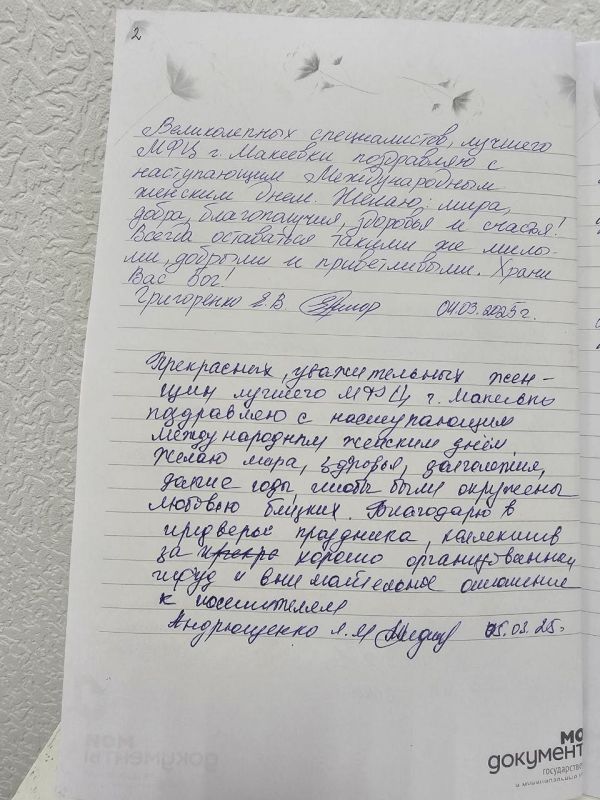 2
Великолепных специалистов, лучшего
МФЦ г. Макеевки поздравляю с
наступающим Международным
женским днем. Желаю: мира,
добра, благополучия, здоровья и счастья!
Всегда оставаться такими же милы-
ми, добрыми и приветливыми. Храни
Вас Бог!
Григоренко Е.В. 04.03.2025г.
Прекрасных, уважительных жен-
щин лучшего МФЦ г. Макеевки
поздравляю с наступающим
международным женским днём,
желаю мира, здоровья, долголетия,
долгие годы, чтобы были окружены
любовью близких. Благодарю в
придверье праздника, коллектив
за хорошо организованный
труд и внимательное отношение
к посетителям
Андрющенко Л.Я 05.03.25г
мои
документы
мо
документ
государстве
и муниципальные у